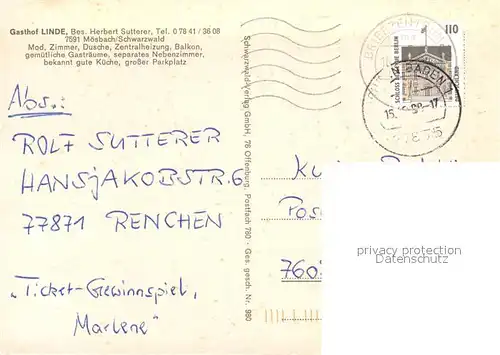 Gasthof LINDE, Bes. Herbert Sutterer, Tel. 0 78 41 / 36 08
7591 Mösbach/Schwarzwald
Mod. Zimmer, Dusche, Zentralheizung, Balkon,
gemütliche Gasträume, separates Nebenzimmer,
bekannt gute Küche, großer Parkplatz
Abs.:
ROLF SUTTERER
HANSjAKOBSTR. 6
77871 RENCHEN
"Ticket-Gewinnspiel,
Marlene"
Schwarzwald-Verlag GmbH, 76 Offenburg, Postfach 780 - Ges. gesch. Nr. 980
110
SCHLOSS BELLEVUE BERLIN
DEUTSCHLAND
privacy protection
Datenschutz